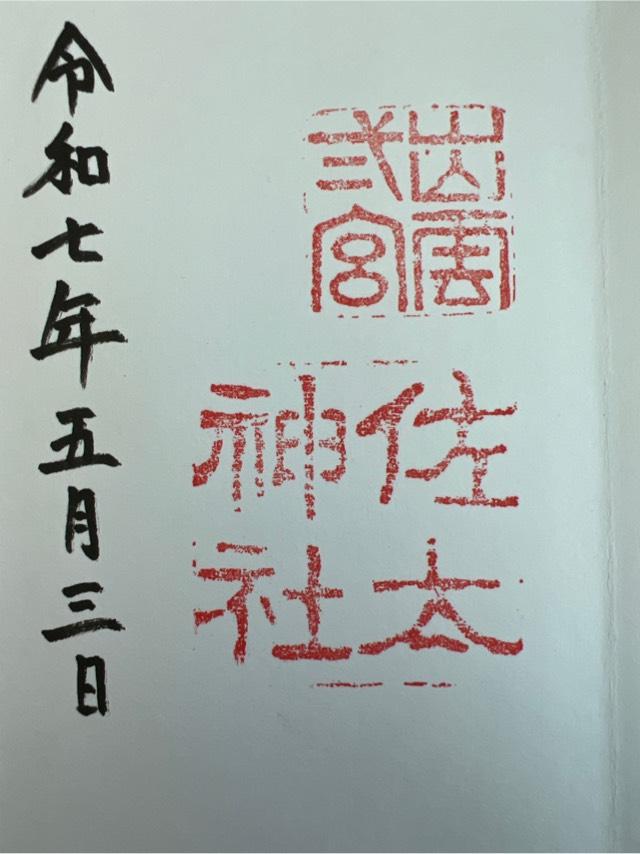 出雲
弐宮
佐太
神社
令和七年五月三日